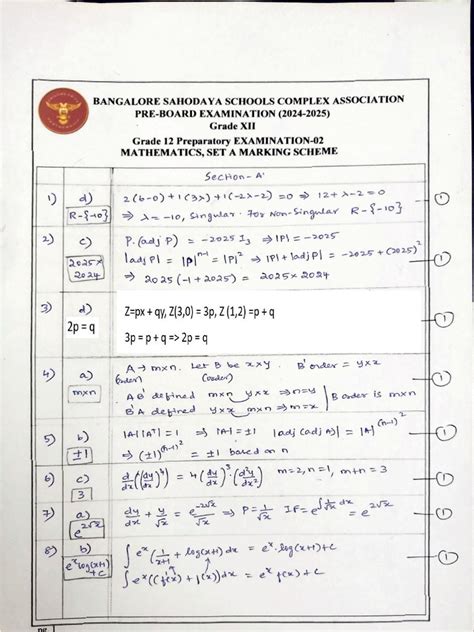 BANGALORE SAHODAYA SCHOOLS COMPLEX ASSOCIATION
PRE-BOARD EXAMINATION (2024-2025)
Grade XII
Grade 12 Preparatory EXAMINATION-02
MATHEMATICS, SET A MARKING SCHEME
Section-A'
1) d) 2(6-0)+1(3λ)+1(-2λ-2)=0 ⇒ 12+λ-2=0 1
R-{-10} ⇒ λ=-10, Singular. For Non-Singular R-{-10}
2) c) P.(adj P) = -2025 I₃ ⇒ |P| = -2025
2025x2024 |adj P| = |P|ⁿ⁻¹ = |P|² ⇒ |P|+|adj P| = -2025+(2025)² 1
⇒ 2025(-1+2025) = 2025x2024
3) d) Z=px + qy, Z(3,0) = 3p, Z (1,2) =p + q 1
2p = q 3p = p + q => 2p = q
4) a) A → mxn. Let B be xxy. B' order = yxx
mxn (order) (order) 1
AB' defined mxn yxx ⇒ n=y B order is mxn
B'A defined yxx mxn ⇒ m=x
5) b) |A| |A⁻¹| = 1 ⇒ |A| = ±1 |adj(adj A)| = |A|^(n-1)² 1
±1 ⇒ (±1)^(n-1)² = ±1 based on n
6) c) d/dx (dy/dx)⁴ = 4(dy/dx)³·(d²y/dx²) m=2, n=1, m+n=3 1
3
7) a) dy/dx + y/√x = e^-2√x/√x ⇒ P = 1/√x IF = e^∫1/√x dx = e^2√x 1
e^2√x
8) b) ∫eˣ(1/x+1 + log(x+1)dx = eˣ.log(x+1)+C 1
eˣlog(x+1)+C ∫eˣ((f'(x) + f(x))dx = eˣ f(x) + C